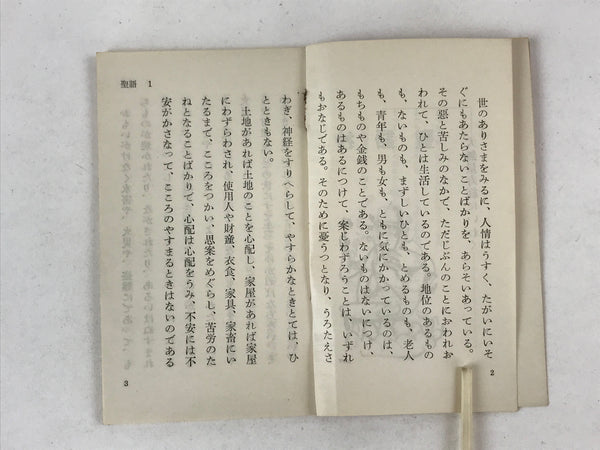 世のありさまをみるに、人情はうすく、たがいにいそ
ぐにもあたらないことばかりを、あらそいあっている。
その惡と苦しみのなかで、ただじぶんのことにおわれお
われて、ひとは生活しているのである。地位のあるもの
も、ないものも、まずしいひとも、とめるものも、老人
も、青年も、男も女も、ともに気にかかっているのは、
もちものや金銭のことである。ないものはないにつけ、
あるものはあるにつけて、案じわずろうことは、いずれ
もおなじである。そのために憂うつとなり、うろたえさ
2
聖語 1
わぎ、神経をすりへらして、やすらかなときとては、ひ
とときもない。
土地があれば土地のことを心配し、家屋があれば家屋
にわずらわされ、使用人や財産、衣食、家具、家畜にい
たるまで、こころをつかい、思案をめぐらし、苦労のた
ねとなることばかりで、心配は心配をうみ、不安には不
安がかさなって、こころのやすまるときはないのである
3